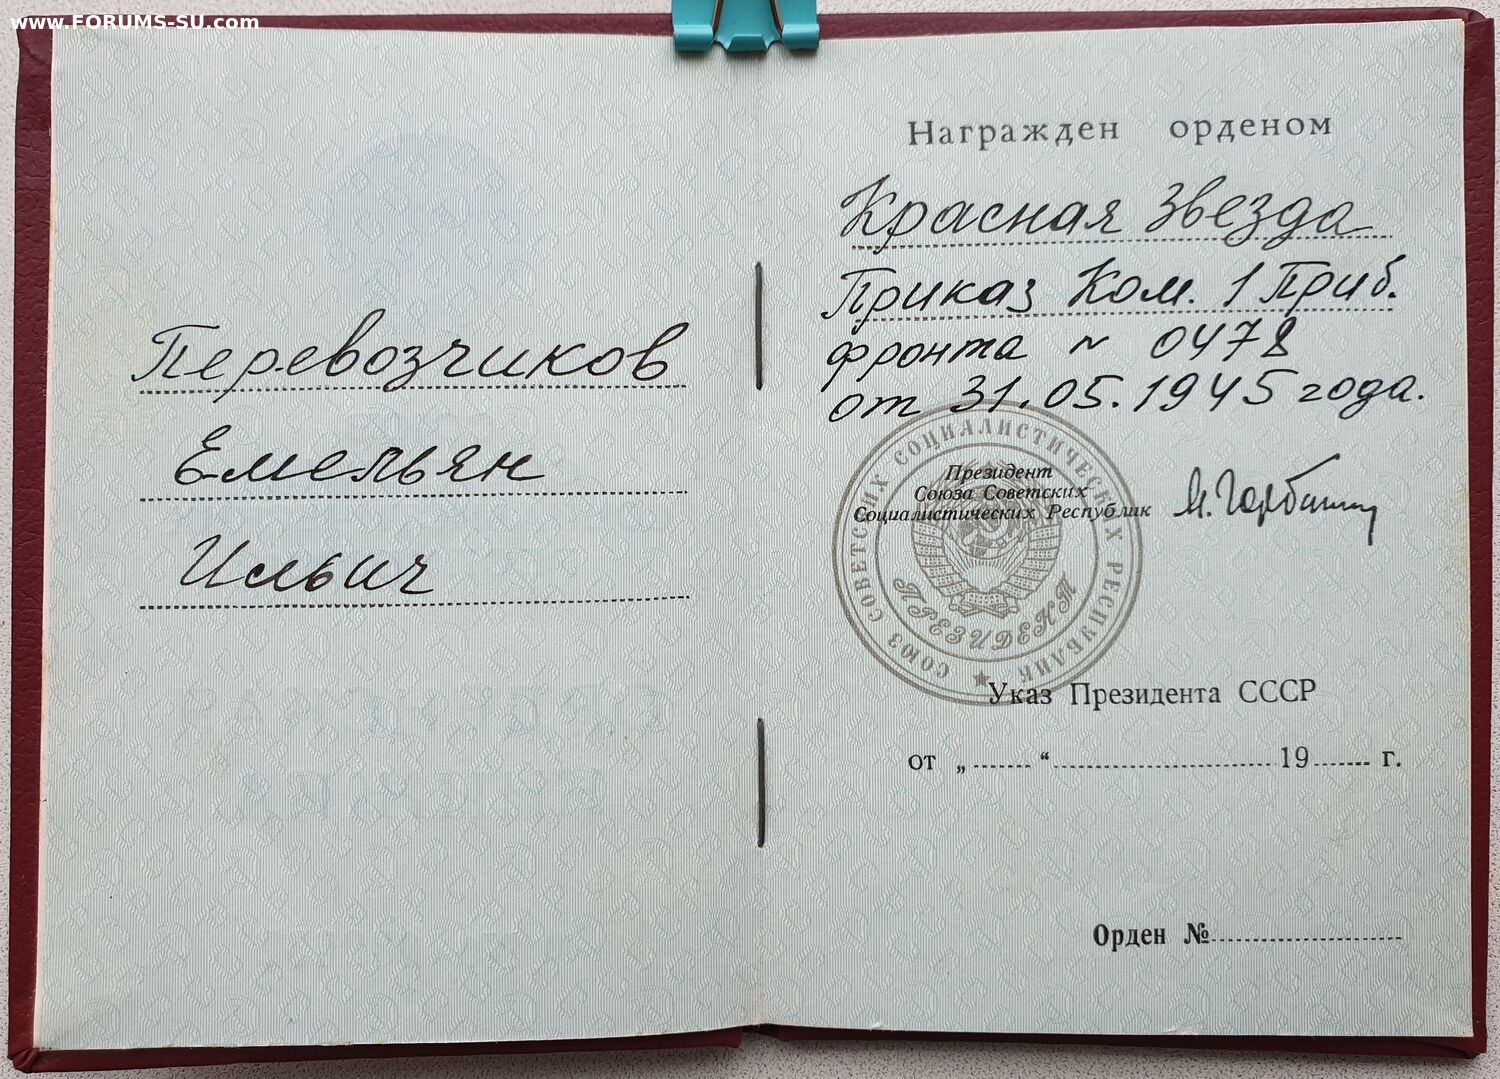 www.FORUMS-SU.com
Перевозчиков
Емельян
Ильич
Награжден орденом
Красная Звезда
Приказ Ком. 1 Приб.
фронта № 0478
от 31.05.1945 года.
СОЮЗ СОВЕТСКИХ СОЦИАЛИСТИЧЕСКИХ РЕСПУБЛИК
Президент
Союза Советских
Социалистических Республик
М. Горбачев
ПРЕЗИДЕНТ
Указ Президента СССР
от „ “ 19 г.
Орден №